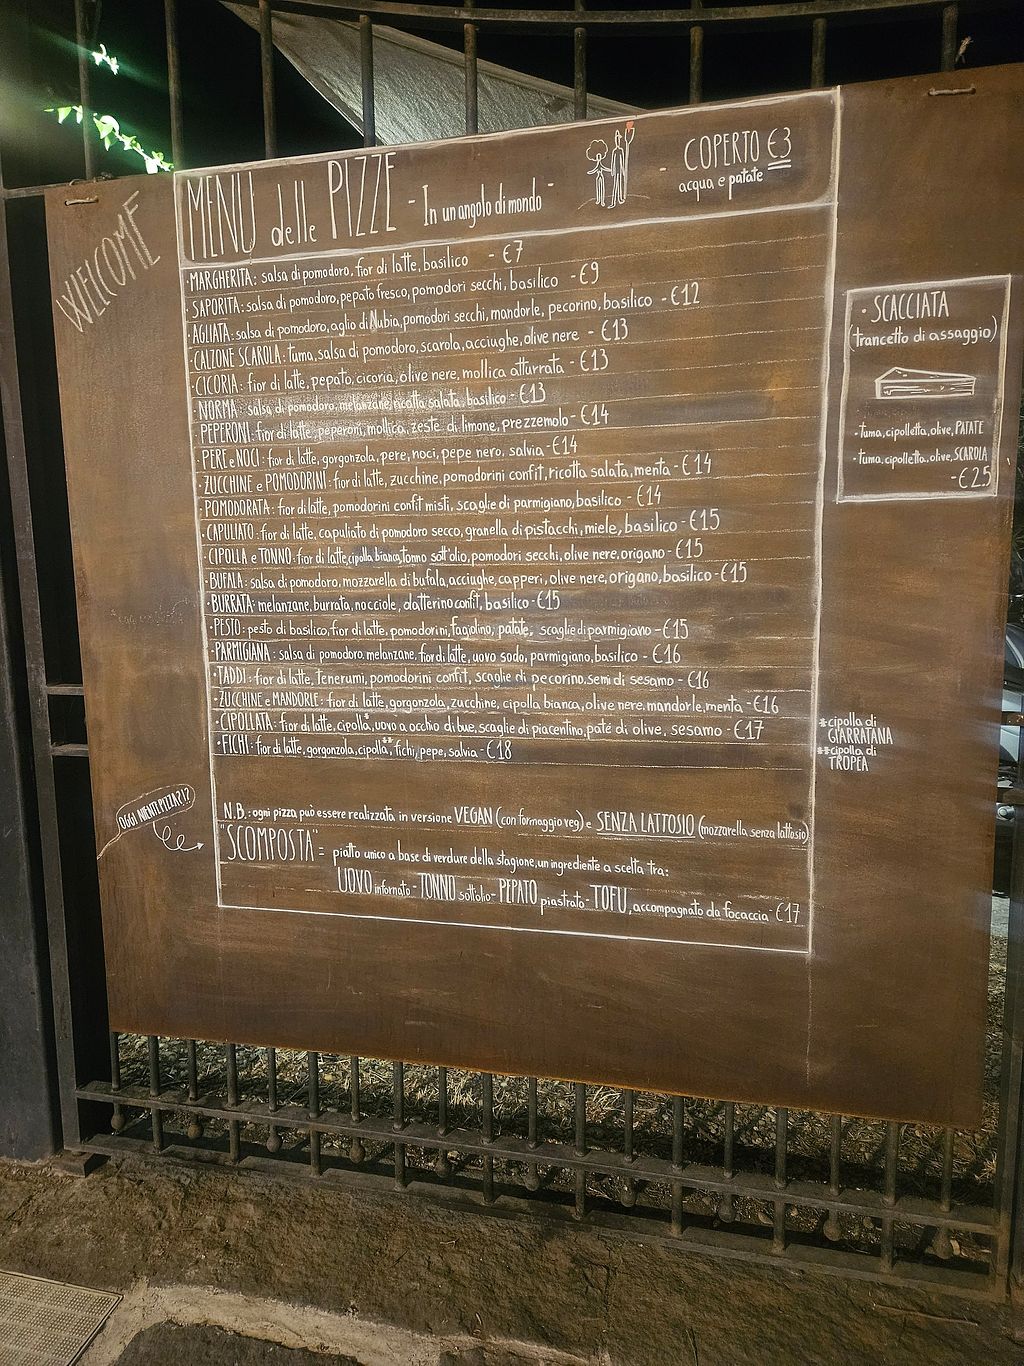 WELCOME
MENU delle PIZZE - In un angolo di mondo -
- COPERTO €3
acqua e patate
· MARGHERITA: salsa di pomodoro, fior di latte, basilico - €7
· SAPORITA: salsa di pomodoro, pepato fresco, pomodori secchi, basilico - €9
· AGLIATA: salsa di pomodoro, aglio di Nubia, pomodori secchi, mandorle, pecorino, basilico - €12
· CALZONE SCAROLA: tuma, salsa di pomodoro, scarola, acciughe, olive nere - €13
· CICORIA: fior di latte, pepato, cicoria, olive nere, mollica atturrata - €13
· NORMA: salsa di pomodoro, melanzane, ricotta salata, basilico - €13
· PEPERONI: fior di latte, peperoni, mollica, zeste di limone, prezzemolo - €14
· PERE e NOCI: fior di latte, gorgonzola, pere, noci, pepe nero, salvia - €14
· ZUCCHINE e POMODORINI: fior di latte, zucchine, pomodorini confit, ricotta salata, menta - €14
· POMODORATA: fior di latte, pomodorini confit misti, scaglie di parmigiano, basilico - €14
· CAPULIATO: fior di latte, capuliato di pomodoro secco, granella di pistacchi, miele, basilico - €15
· CIPOLLA e TONNO: fior di latte, cipolla bianca, tonno sott'olio, pomodori secchi, olive nere, origano - €15
· BUFALA: salsa di pomodoro, mozzarella di bufala, acciughe, capperi, olive nere, origano, basilico - €15
· BURRATA: melanzane, burrata, nocciole, datterino confit, basilico - €15
· PESTO: pesto di basilico, fior di latte, pomodorini, fagiolino, patate, scaglie di parmigiano - €15
· PARMIGIANA: salsa di pomodoro, melanzane, fior di latte, uovo sodo, parmigiano, basilico - €16
· TADDI: fior di latte, tenerumi, pomodorini confit, scaglie di pecorino, semi di sesamo - €16
· ZUCCHINE e MANDORLE: fior di latte, gorgonzola, zucchine, cipolla bianca, olive nere, mandorle, menta - €16
· CIPOLLATA: fior di latte, cipolla*, uovo a occhio di bue, scaglie di piacentino, paté di olive, sesamo - €17
· FICHI: fior di latte, gorgonzola, cipolla**, fichi, pepe, salvia - €18
N.B.: ogni pizza può essere realizzata in versione VEGAN (con formaggio veg) e SENZA LATTOSIO (mozzarella senza lattosio)
OGGI NIENTE PIZZA?!?
"SCOMPOSTA" = piatto unico a base di verdure della stagione, un ingrediente a scelta tra:
UOVO infornato - TONNO sottolio - PEPATO piastrato - TOFU, accompagnato da focaccia - €17
· SCACCIATA
(trancetto di assaggio)
· tuma, cipolletta, olive, PATATE
· tuma, cipolletta, olive, SCAROLA
- €2.5
*cipolla di
GIARRATANA
**cipolla di
TROPEA